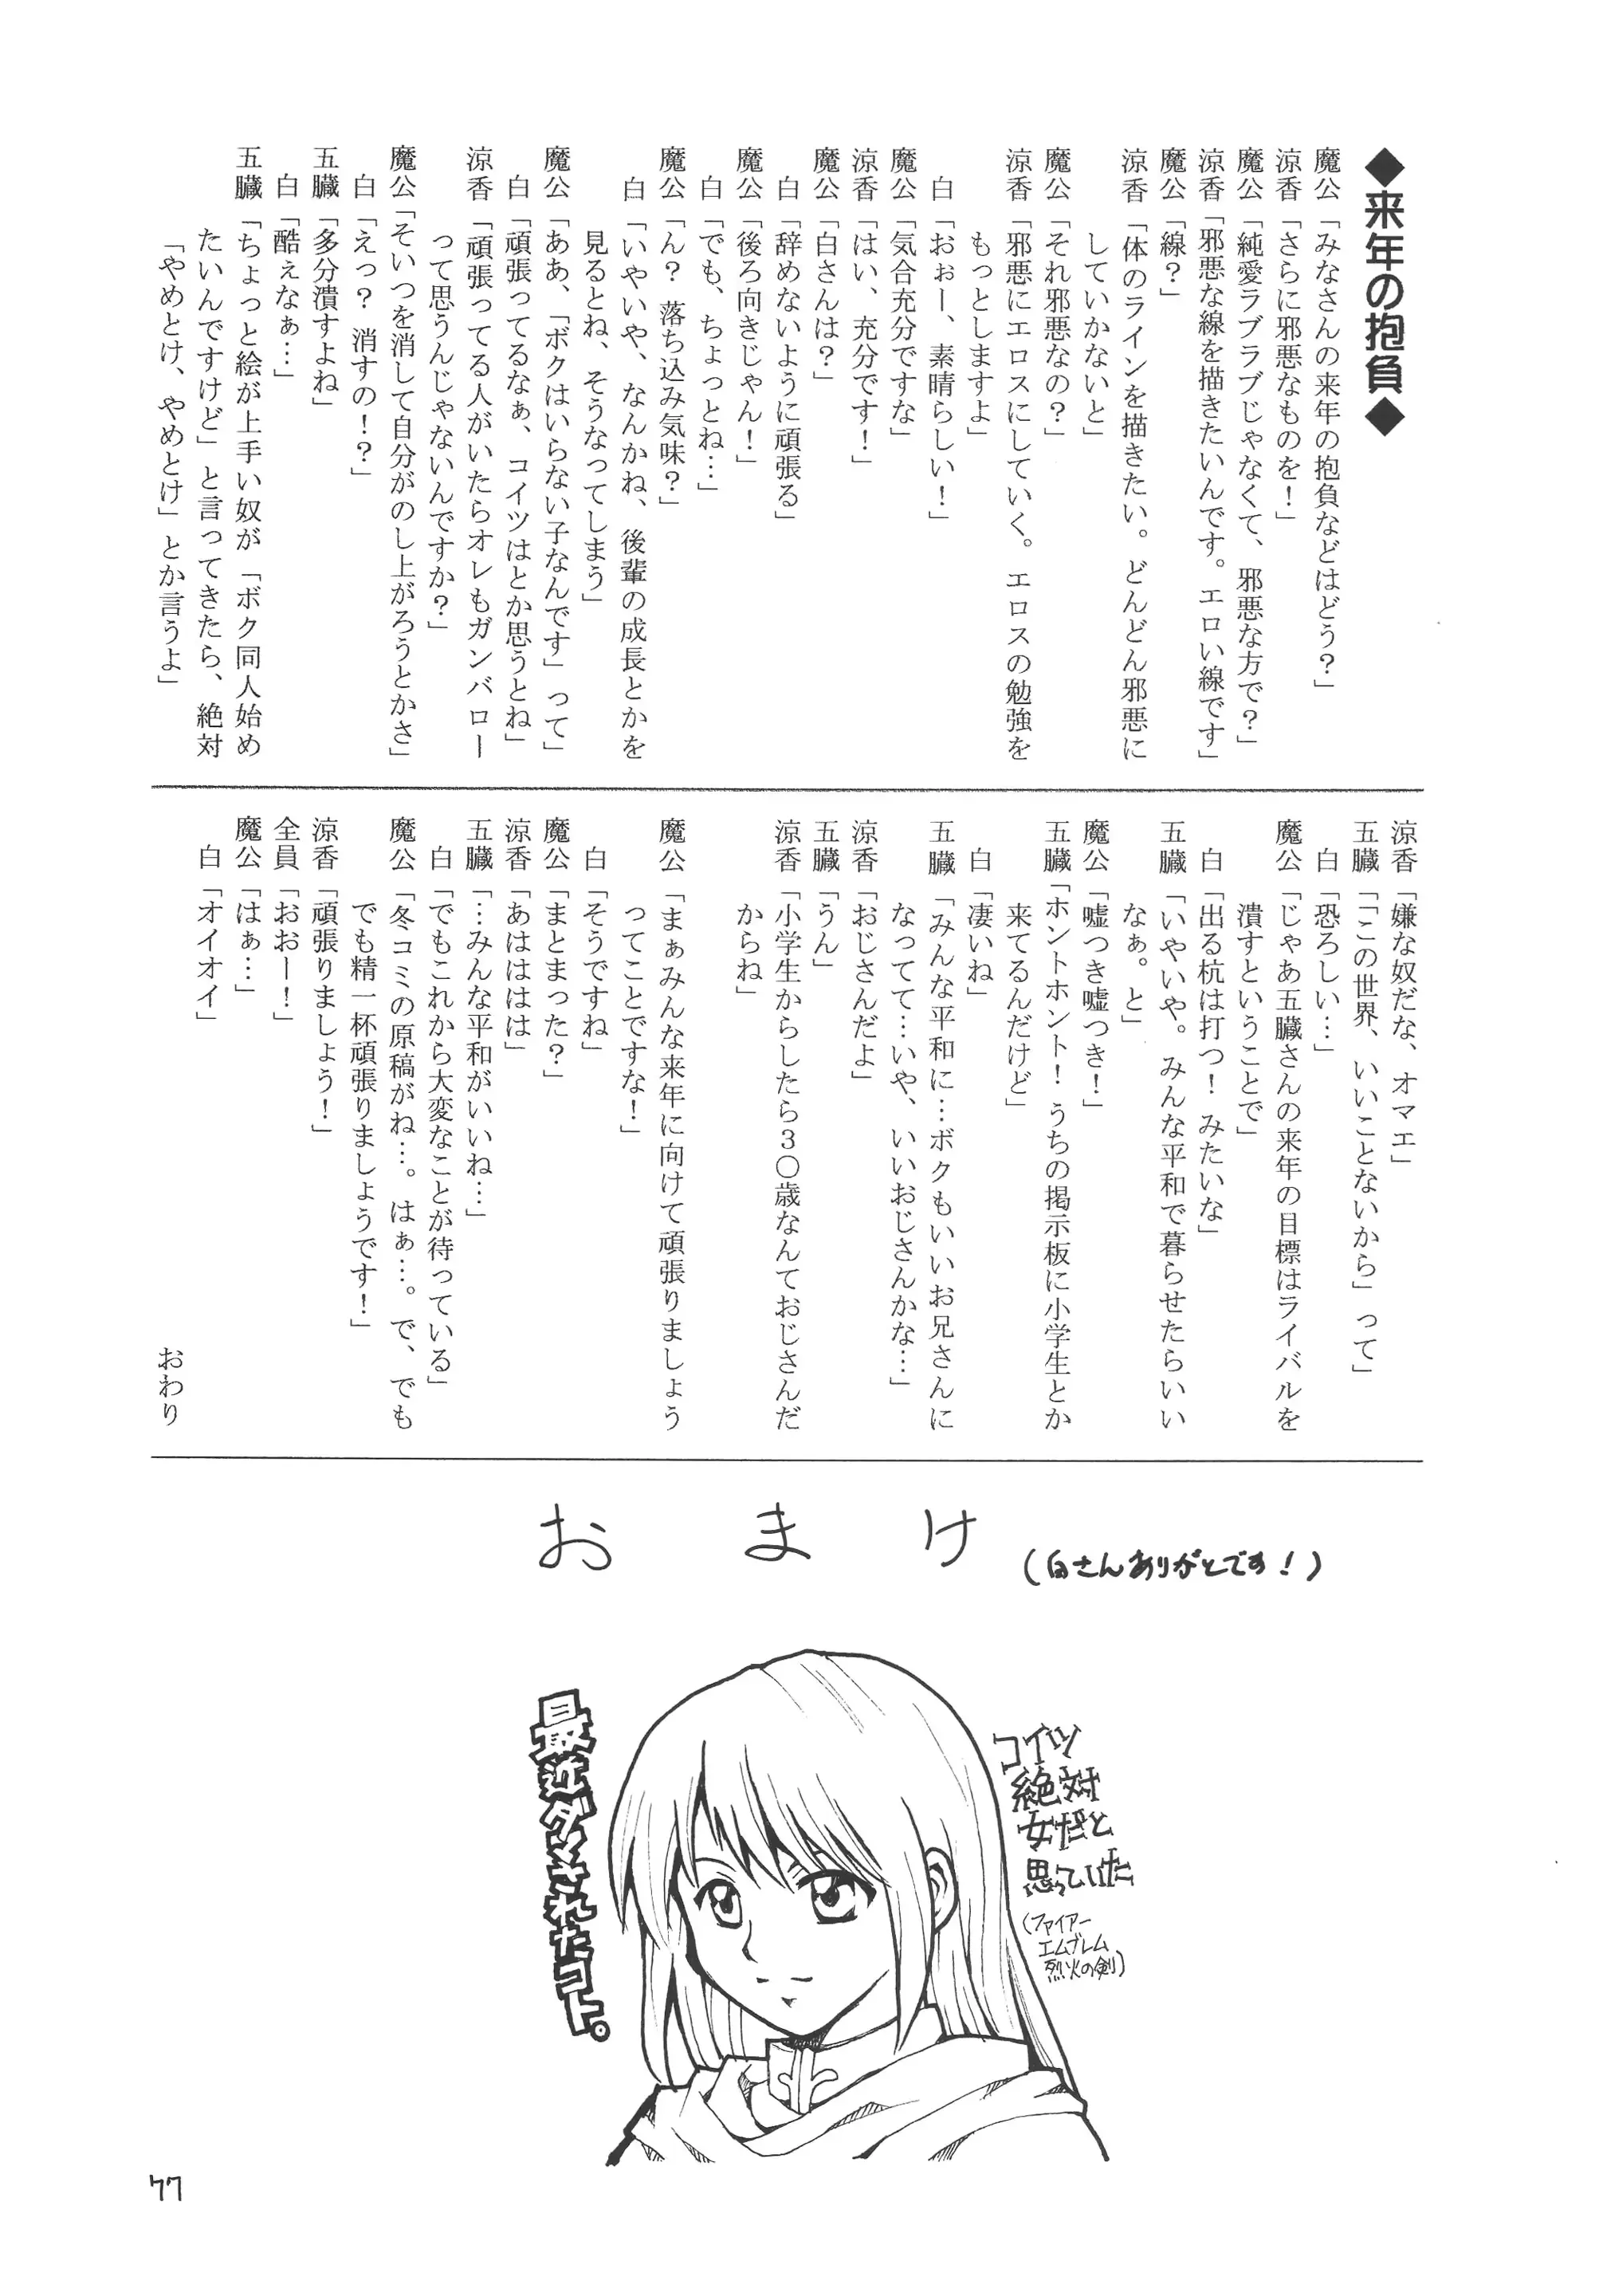 ◆来年の抱負◆
魔公「みなさんの来年の抱負などはどう？」
涼香「さらに邪悪なものを！」
魔公「純愛ラブラブじゃなくて、邪悪な方で？」
涼香「邪悪な線を描きたいんです。エロい線です」
魔公「線？」
涼香「体のラインを描きたい。どんどん邪悪に
していかないと」
魔公「それ邪悪なの？」
涼香「邪悪にエロスにしていく。エロスの勉強を
もっとしますよ」
白「おぉー、素晴らしい！」
魔公「気合充分ですな」
涼香「はい、充分です！」
魔公「白さんは？」
白「辞めないように頑張る」
魔公「後ろ向きじゃん！」
白「でも、ちょっとね…」
魔公「ん？ 落ち込み気味？」
白「いやいや、なんかね、後輩の成長とかを
見るとね、そうなってしまう」
魔公「ああ、「ボクはいらない子なんです」って」
白「頑張ってるなぁ、コイツはとか思うとね」
涼香「頑張ってる人がいたらオレもガンバロー
って思うんじゃないんですか？」
魔公「そいつを消して自分がのし上がろうとかさ」
白「えっ？ 消すの！？」
五臓「多分潰すよね」
白「酷ぇなぁ…」
五臓「ちょっと絵が上手い奴が「ボク同人始め
たいんですけど」と言ってきたら、絶対
「やめとけ、やめとけ」とか言うよ」
涼香「嫌な奴だな、オマエ」
五臓「「この世界、いいことないから」って」
白「恐ろしい…」
魔公「じゃあ五臓さんの来年の目標はライバルを
潰すということで」
白「出る杭は打つ！ みたいな」
五臓「いやいや。みんな平和で暮らせたらいい
なぁ。と」
魔公「嘘つき嘘つき！」
五臓「ホントホント！ うちの掲示板に小学生とか
来てるんだけど」
白「凄いね」
五臓「みんな平和に…ボクもいいお兄さんに
なってて…いや、いいおじさんかな…」
涼香「おじさんだよ」
五臓「うん」
涼香「小学生からしたら３〇歳なんておじさんだ
からね」
魔公「まぁみんな来年に向けて頑張りましょう
ってことですな！」
白「そうですね」
魔公「まとまった？」
涼香「あはははは」
五臓「…みんな平和がいいね…」
白「でもこれから大変なことが待っている」
魔公「冬コミの原稿がね…。はぁ…。で、でも
でも精一杯頑張りましょうです！」
涼香「頑張りましょう！」
全員「おおー！」
魔公「はぁ…」
白「オイオイ」
おわり
おまけ
(白さんありがとです！)
コイツ
絶対
女だと
思っていた
(ファイアー
エムブレム
烈火の剣)
最近ダメされたコト。
77